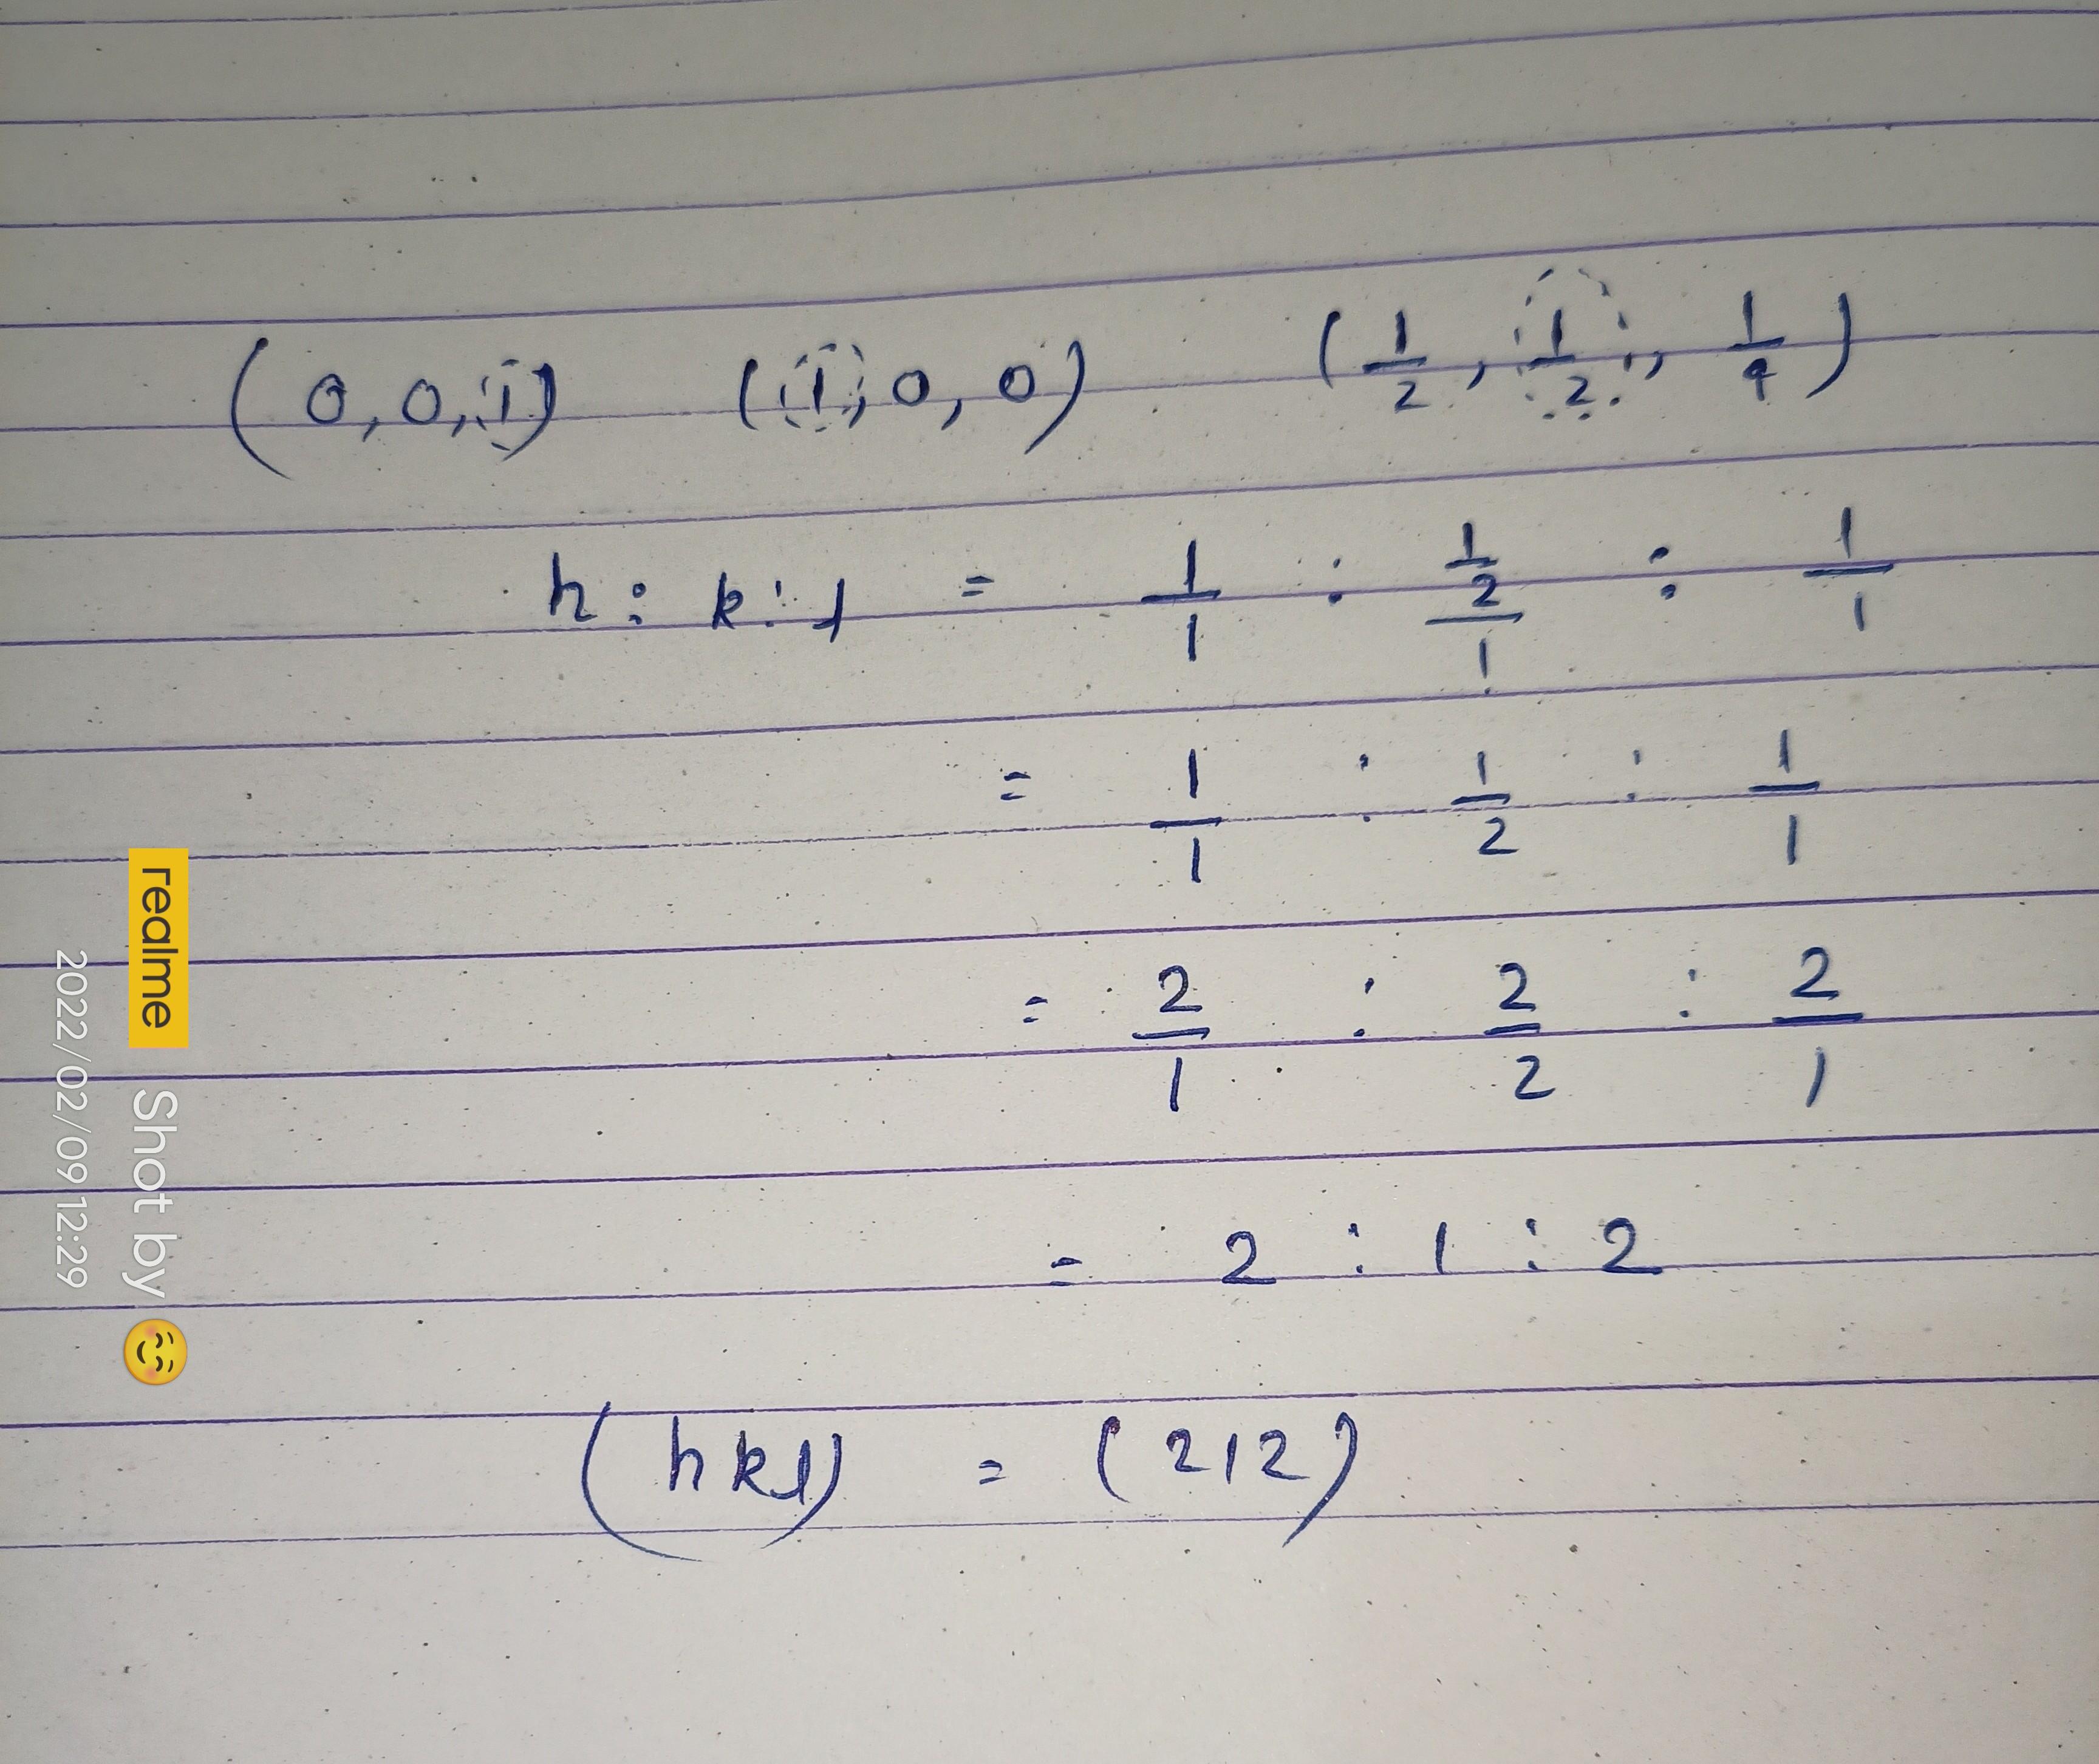 (0,0,1) (1,0,0) (1/2, 1/2, 1/4)
h : k : l = 1/1 : 1/2/1 : 1/1
= 1/1 : 1/2 : 1/1
= 2/1 : 2/2 : 2/1
= 2 : 1 : 2
(hkl) = (212)
realme Shot by 😊
2022/02/09 12:29